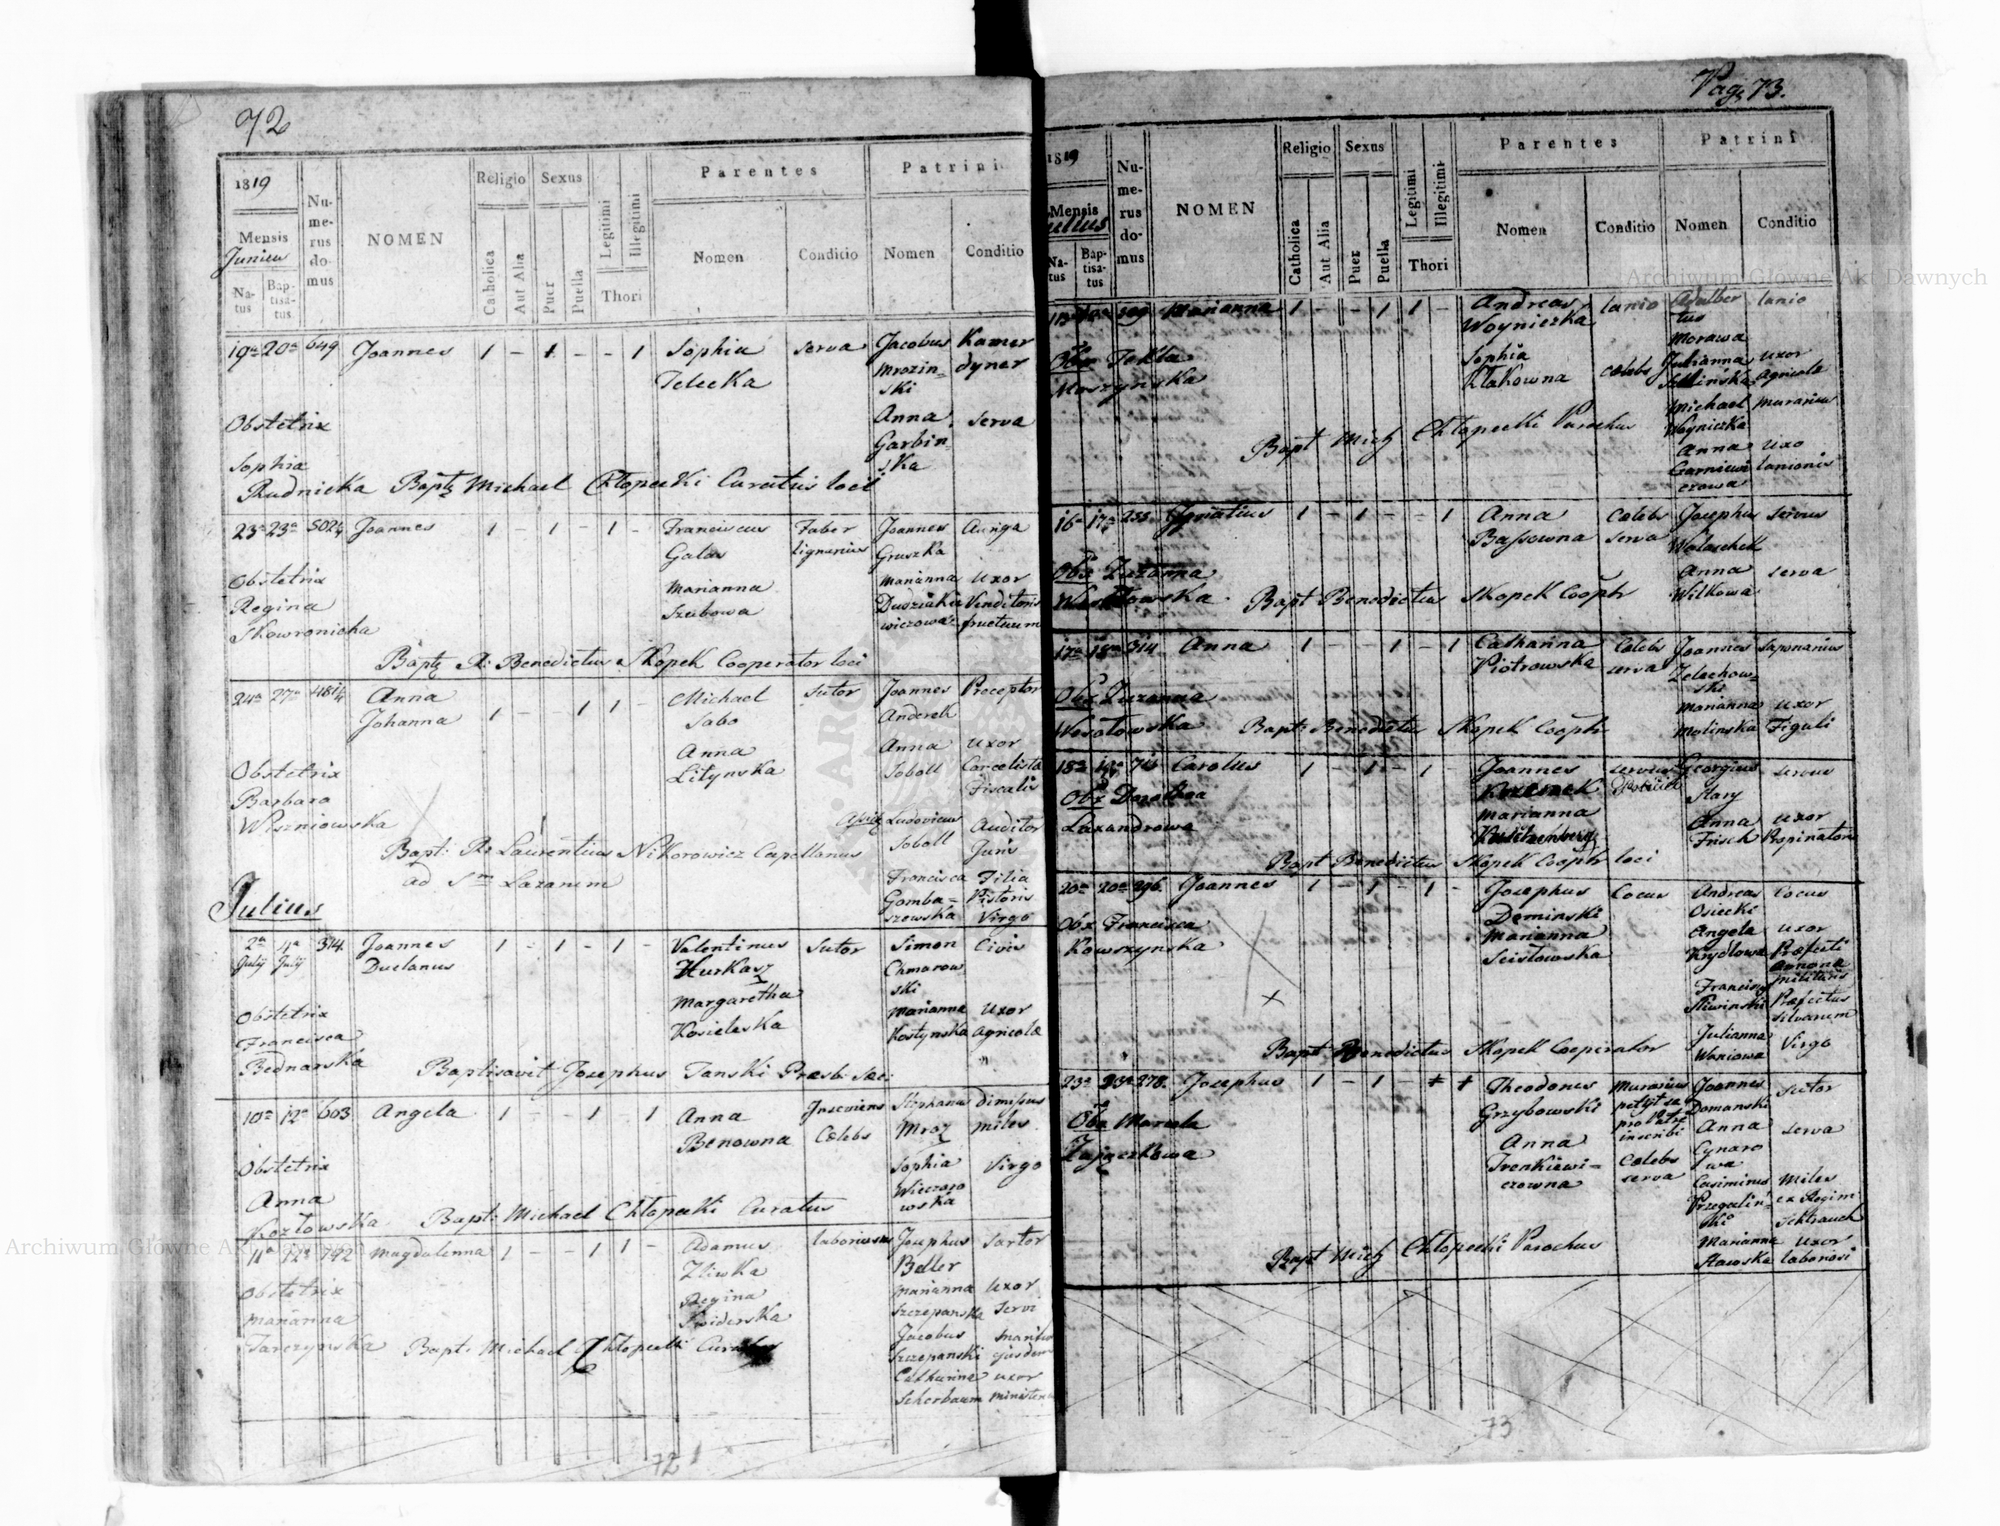 72
1819
Mensis
Junius
Natus
Baptisatus
Numerus domus
NOMEN
Religio
Catholica
Aut Alia
Sexus
Puer
Puella
Legitimi
Illegitimi
Thori
Parentes
Nomen
Conditio
Patrini
Nomen
Conditio
19a 20a 649 Joannes 1 - 1 - - 1 Sophia serva Jacobus Kamer
Telecka Mrozin= dyner
ski
Obstetrix Anna serva
Sophia Garbin=
Rudnicka Baptz Michael Chłopecki Curatus loci ska
23a 23a Joannes 1 - 1 - 1 - Franciscus Faber Joannes Auriga
Galas lignarius Gruszka
Obstetrix Marianna Marianna uxor
Regina Szubowa Venditoris
Skowronicka wiczowa fructuum
Baptz R: Benedictus Skopek Cooperator loci
24a 27a Anna Michael Sutor Joannes Preceptor
Johanna 1 - 1 1 - Sabo Andereh
Anna Anna uxor
Obstetrix Litynska Soboll
Barbara Fiscalis
Wiszniowska Ludovicus Auditor
Bapt: R: Laurentius Nikorowicz Capellanus Soboll Juris
ad Sm Lazarum Francisca Filia
Julius Gomba= Pistoris
szowska Virgo
2a 4a 314 Joannes 1 - 1 - 1 - Valentinus Sutor Simon Civis
July July Duclanus Kurkasz Chmarow
ski
Obstetrix Margaretha Marianna uxor
Francisca Kosielska Kostynska Agricolae
Bednarska Baptisavit Josephus Tanski Presb: Saec:
10a 12a 603 Angela 1 - - 1 - 1 Anna Stephanus dimissus
Benowna Celebs Mroz miles
Obstetrix Sophia Virgo
Anna Wieczoro
Kozłowska Bapt: Michael Chłopecki Curatus wska
11a 12a 742 Magdalenna 1 - - 1 1 - Adamus laboriosus Josephus Sartor
Zliwka Beller
Obstetrix Regina Marianna uxor
Marianna Swiderska Szczepanska
Tarczynska Bapt: Michael Chłopecki Curatus Jacobus maritus
Szczepanski ejusdem
Catharina uxor
Scherbaum
72
Pag 73.
1819
Mensis
Julius
Natus
Baptisatus
Numerus domus
NOMEN
Religio
Catholica
Aut Alia
Sexus
Puer
Puella
Legitimi
Illegitimi
Thori
Parentes
Nomen
Conditio
Patrini
Nomen
Conditio
Marianna 1 - - 1 1 - Andreas lanio Adalber lanio
Woyniczka tus
Morawa
Obx Tekla Sophia celebs Julianna uxor
Moszynska Kłakowna Agricolae
Michael murarius
Bapt Mich Chłopecki Parochus Woyniczka
Anna uxo
Garniewi lanionis
czowa
16a 17a 255 Ignatius 1 - 1 - - 1 Anna Celebs Josephus servus
Bassowna serva Walaschek
Obx Zuzanna Anna serva
Bapt Benedictus Skopek Cooptr Wilkowa
17a 18a 314 Anna 1 - - 1 - 1 Catharina Celebs Joannes Saponarius
Piotrowska serva Zelechow=
ski
Obx Zuzanna Marianna uxor
Wesołowska Bapt: Benedictus Skopek Cooptr Molinska Figuli
18a 19a Carolus 1 - 1 - 1 - Joannes servus Georgius servus
Stary
Obx Dorothea Marianna Anna uxor
Laxandrowa Frisch Propinatoris
Bapt Benedictus Skopek Cooptr loci
20a 20a 296 Joannes 1 - 1 - 1 - Josephus Cocus Andreas Cocus
Deminski Osiecki
Obx Francisca Marianna Angela uxor
Kowrzynska Scisłowska Krydlowa Prefecti
annona
militaris
Francisc Prefectus
Sliwinski silvarum
Julianna Virgo
Bapt Benedictus Skopek Cooperator Woniowa
23a 23a 278 Josephus 1 - 1 - Theodorus Murarius Joannes Sutor
Grzybowski petyt se Domanski
pro Patre
Obx Marcela Anna inscribi Anna serva
Zajączkowa Trenkiewi= Celebs Cynaro
czowna serva wa
Casimirus Miles
Przegalin= ex Regim
ski Schtrauch
Bapt Mich Chłopecki Parochus Marianna uxor
Stawska labariosi
73
Archiwum Główne Akt Dawnych
Archiwum Główne Akt Dawnych